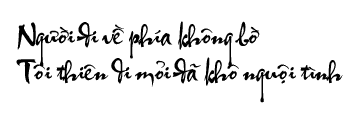 Người đi về phía không bờ
Tôi thiên di mỏi đã khô nguội tình